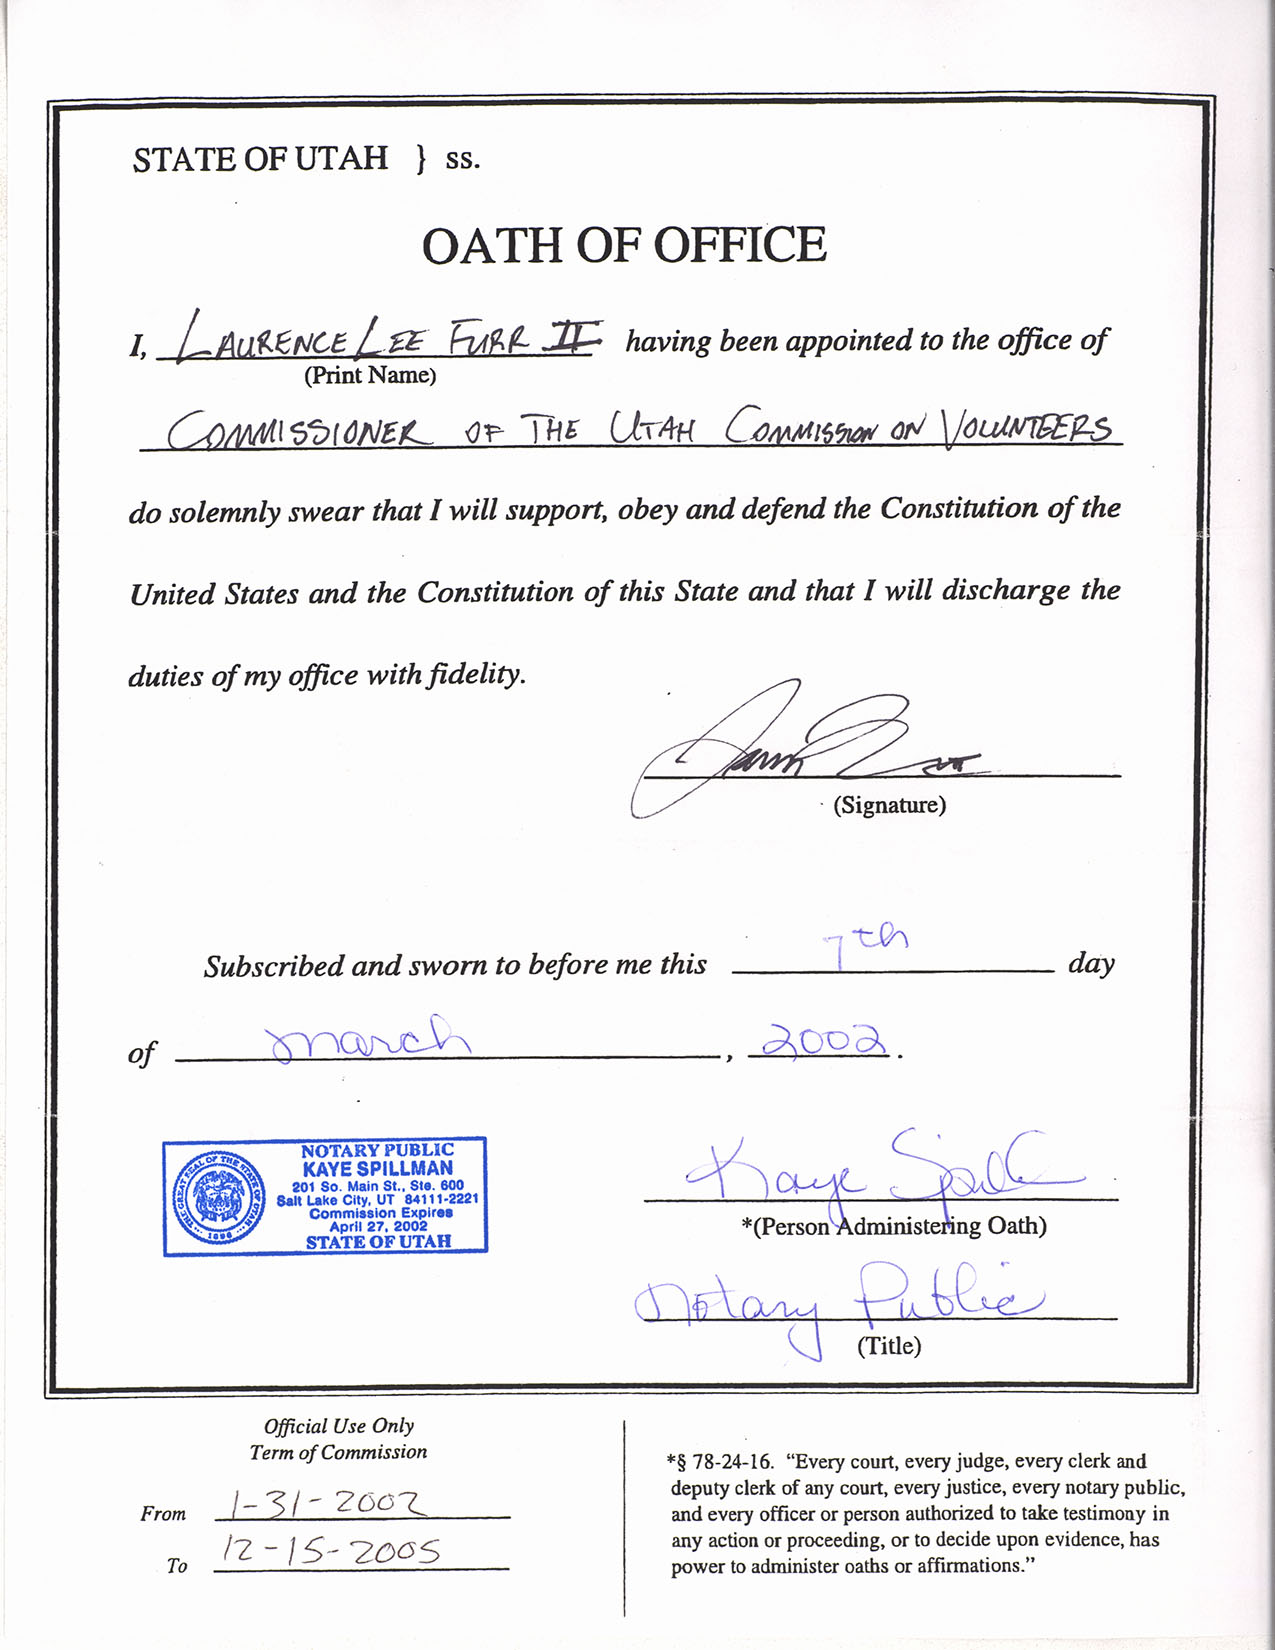 STATE OF UTAH } ss.
OATH OF OFFICE
I, LAURENCE LEE FURR II having been appointed to the office of
(Print Name)
COMMISSIONER OF THE UTAH COMMISSION ON VOLUNTEERS
do solemnly swear that I will support, obey and defend the Constitution of the
United States and the Constitution of this State and that I will discharge the
duties of my office with fidelity.
(Signature)
Subscribed and sworn to before me this 7th day
of March, 2002.
NOTARY PUBLIC
KAYE SPILLMAN
201 So. Main St., Ste. 600
Salt Lake City, UT 84111-2221
Commission Expires
April 27, 2002
STATE OF UTAH
THE GREAT SEAL OF THE STATE OF UTAH
1896
Kaye Spillman
*(Person Administering Oath)
Notary Public
(Title)
Official Use Only
Term of Commission
From 1-31-2002
To 12-15-2005
*§ 78-24-16. “Every court, every judge, every clerk and
deputy clerk of any court, every justice, every notary public,
and every officer or person authorized to take testimony in
any action or proceeding, or to decide upon evidence, has
power to administer oaths or affirmations.”